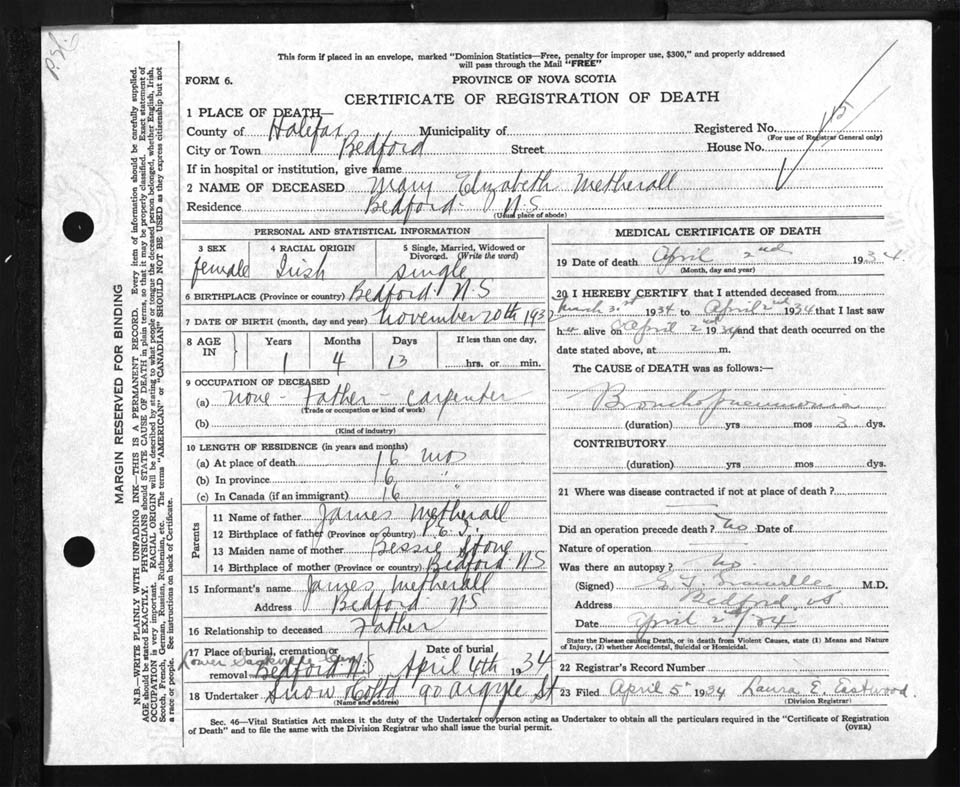 This form if placed in an envelope, marked "Dominion Statistics—Free, penalty for improper use, $300," and properly addressed
will pass through the Mail "FREE"
FORM 6.
PROVINCE OF NOVA SCOTIA
CERTIFICATE OF REGISTRATION OF DEATH
1 PLACE OF DEATH—
County of Halifax Municipality of Registered No.
(For use of Registrar General only)
City or Town Bedford Street House No.
If in hospital or institution, give name
2 NAME OF DECEASED Mary Elizabeth Metherall
Residence Bedford N S
(Usual place of abode)
PERSONAL AND STATISTICAL INFORMATION
3 SEX 4 RACIAL ORIGIN 5 Single, Married, Widowed or
Divorced. (Write the word)
female Irish single
6 BIRTHPLACE (Province or country) Bedford N S
7 DATE OF BIRTH (month, day and year) November 20th 1932
8 AGE IN Years Months Days If less than one day,
1 4 13 hrs. or min.
9 OCCUPATION OF DECEASED
(a) none - Father - carpenter
(Trade or occupation or kind of work)
(b)
(Kind of industry)
10 LENGTH OF RESIDENCE (in years and months)
(a) At place of death 16 mos
(b) In province 16 "
(c) In Canada (if an immigrant) 16
Parents
11 Name of father James Metherall
12 Birthplace of father (Province or country) P.E.I.
13 Maiden name of mother Bessie Stone
14 Birthplace of mother (Province or country) Bedford N S
15 Informant's name James Metherall
Address Bedford N S
16 Relationship to deceased Father
17 Place of burial, cremation or Date of burial
Lower Sackville
removal Bedford N.S April 4th 1934
18 Undertaker Snow & Co Ltd 90 Argyle St
(Name and address)
MEDICAL CERTIFICATE OF DEATH
19 Date of death April 2nd 1934.
(Month, day and year)
20 I HEREBY CERTIFY that I attended deceased from
March 31st 1934 to April 2nd 1934 that I last saw
h alive on April 2nd 1934 and that death occurred on
date stated above, at m.
The CAUSE of DEATH was as follows:—
Bronchopneumonia
(duration) yrs mos 3 dys.
CONTRIBUTORY
(duration) yrs mos dys.
21 Where was disease contracted if not at place of death?
Did an operation precede death? no Date of
Nature of operation
Was there an autopsy? no.
(Signed) M.D.
Address Bedford NS
Date April 2nd/34
State the Disease causing Death, or in death from Violent Causes, state (1) Means and Nature
of Injury, (2) whether Accidental, Suicidal or Homicidal.
22 Registrar's Record Number
23 Filed April 5 1934 Laura E. Eastwood.
(Division Registrar)
Sec. 46—Vital Statistics Act makes it the duty of the Undertaker or person acting as Undertaker to obtain all the particulars required in the "Certificate of Registration
of Death" and to file the same with the Division Registrar who shall issue the burial permit.
(OVER)
MARGIN RESERVED FOR BINDING
N.B.—WRITE PLAINLY WITH UNFADING INK—THIS IS A PERMANENT RECORD. Every item of information should be carefully supplied.
AGE should be stated EXACTLY. PHYSICIANS should STATE CAUSE OF DEATH in plain terms, so that it may be properly classified. Exact statement of
OCCUPATION is very important. RACIAL ORIGIN will be described by stating to what people or tongue the deceased person belonged, whether English, Irish,
Scotch, French, German, Russian, Ruthenian, etc. The terms "AMERICAN" or "CANADIAN" SHOULD NOT BE USED as they express citizenship but not
a race or people. See instructions on back of Certificate.